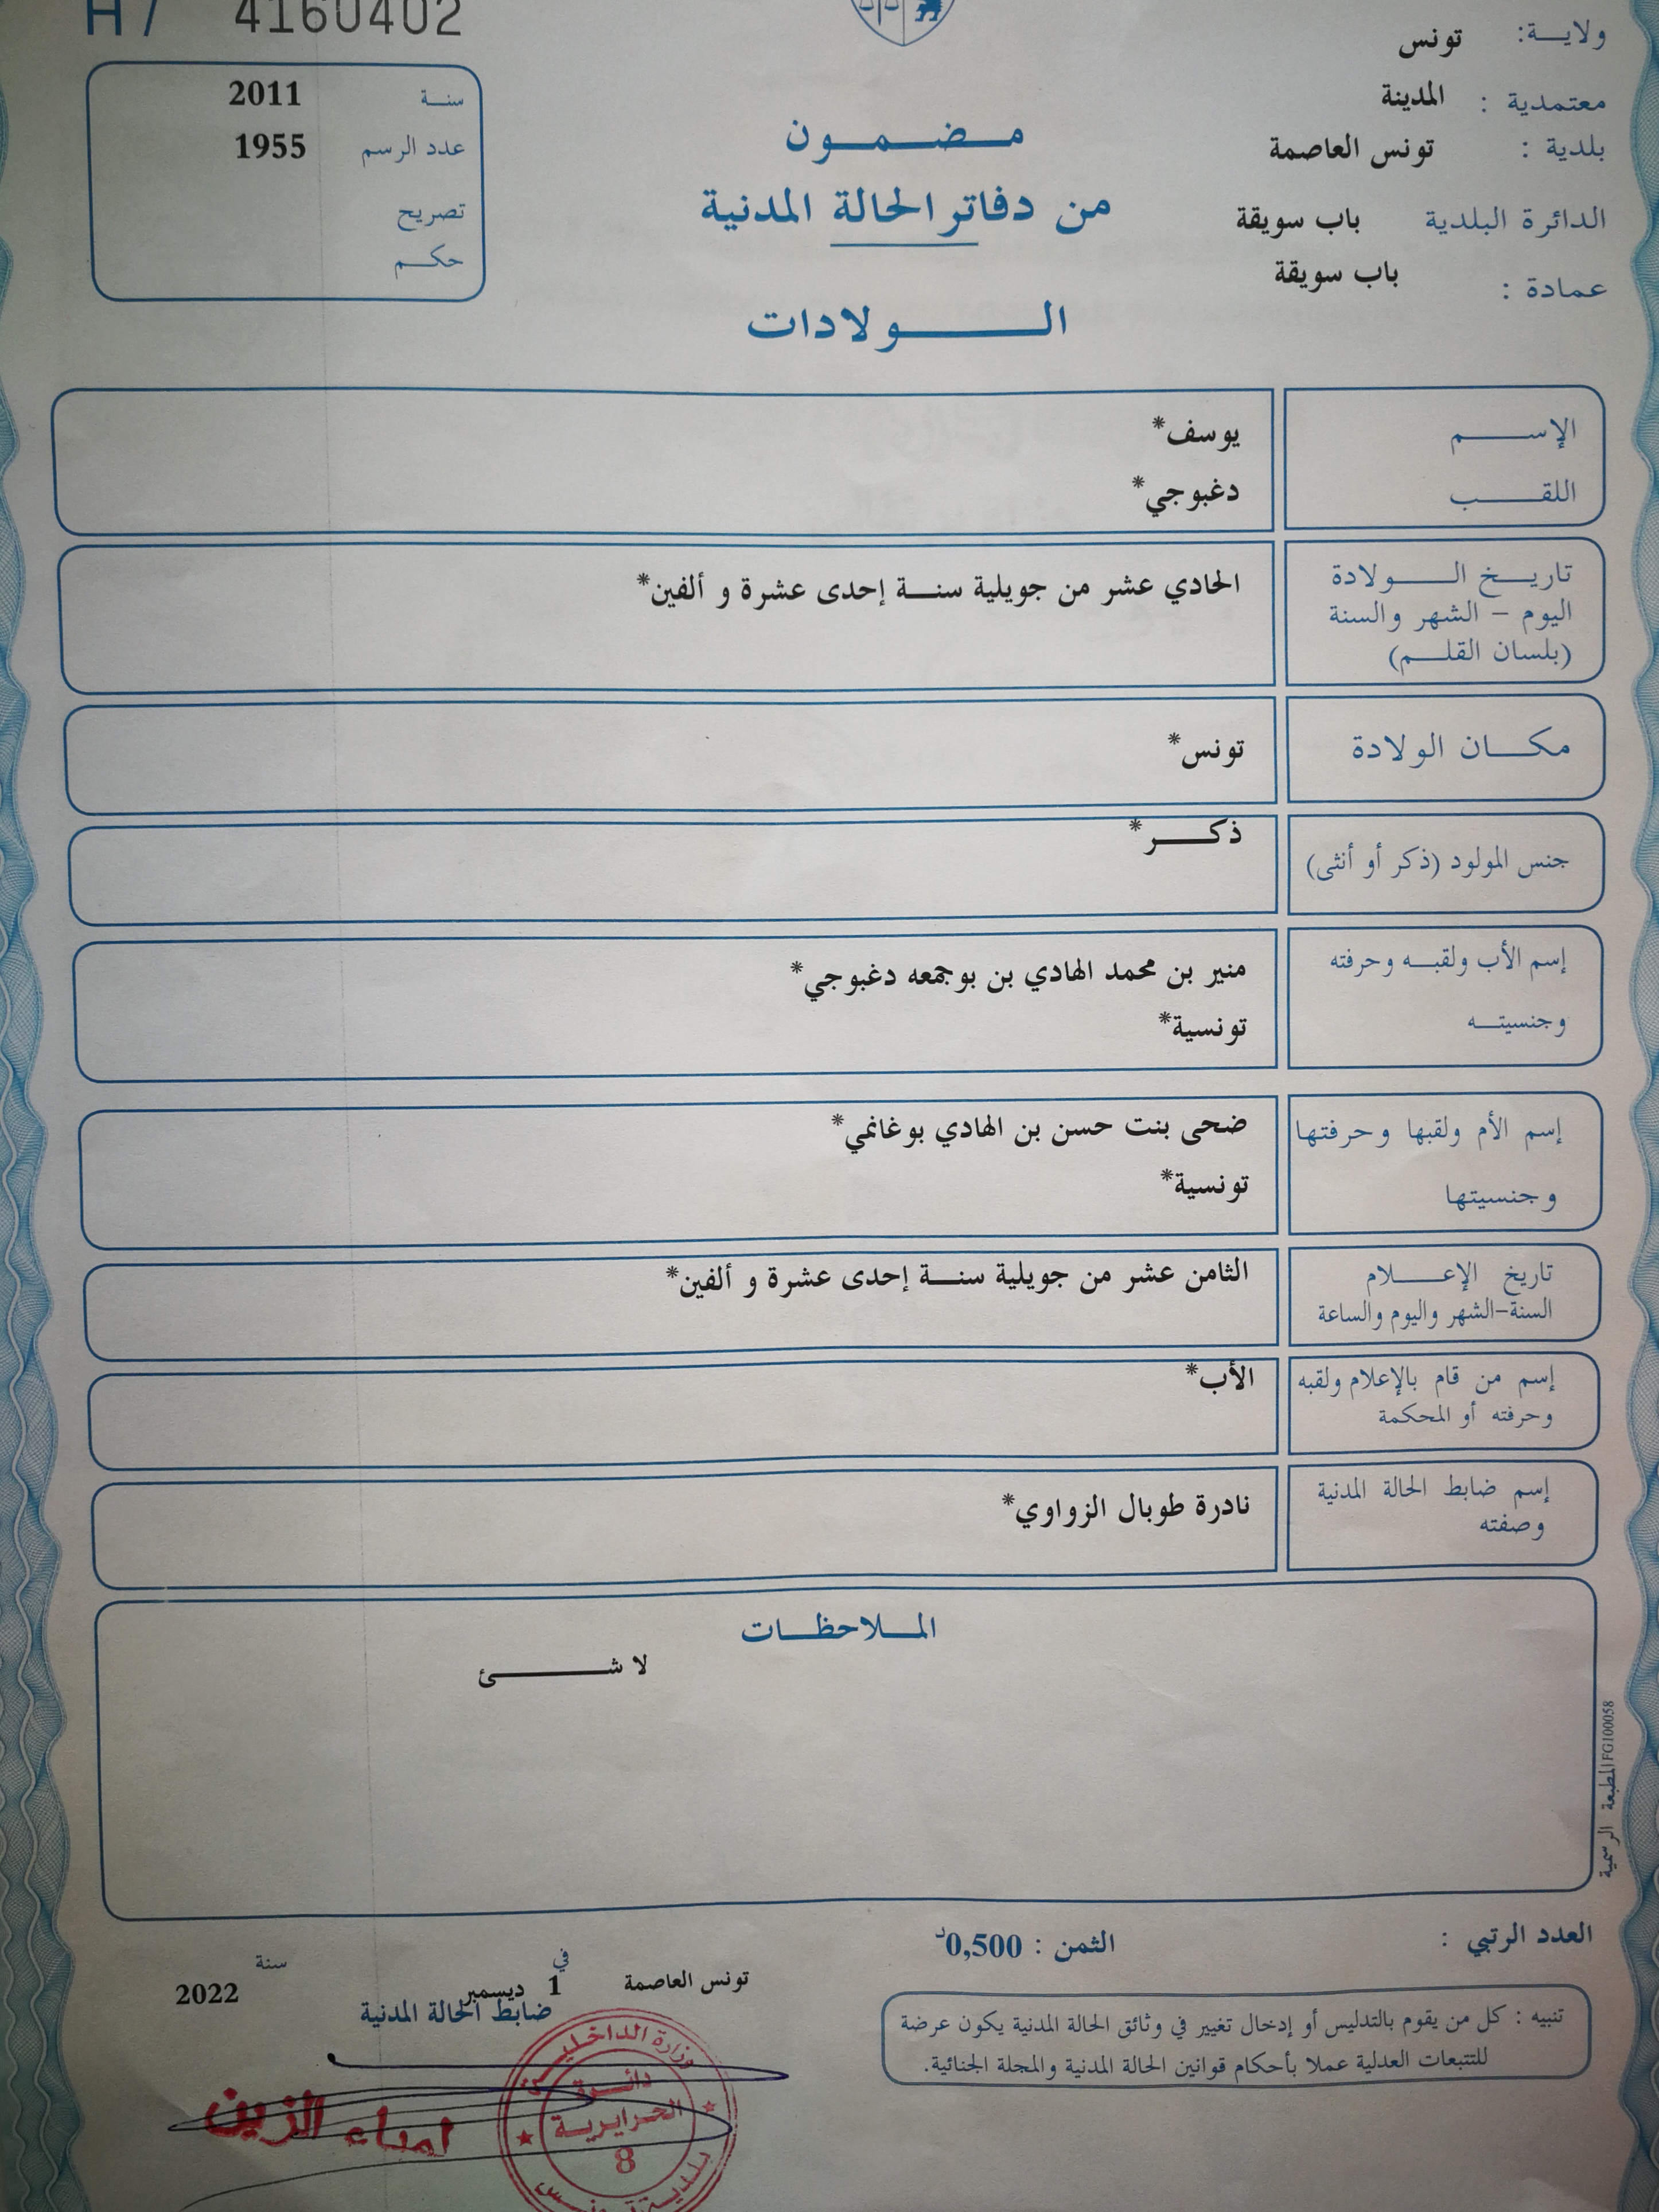 H7 4160402
ولاية: تونس
معتمدية : المدينة
بلدية : تونس العاصمة
الدائرة البلدية باب سويقة
عمادة : باب سويقة
مضمون
من دفاتر الحالة المدنية
الولادات
سنة 2011
عدد الرسم 1955
تصريح
حكم
الإسم يوسف*
اللقب دغبوجي*
تاريخ الولادة الحادي عشر من جويلية سنة إحدى عشرة و ألفين*
اليوم - الشهر والسنة
(بلسان القلم)
مكان الولادة تونس*
جنس المولود (ذكر أو أنثى) ذكر*
إسم الأب ولقبه وحرفته منير بن محمد الهادي بن بوجمعه دغبوجي*
وجنسيته تونسية*
إسم الأم ولقبها وحرفتها ضحى بنت حسن بن الهادي بوغانمي*
وجنسيتها تونسية*
تاريخ الإعلام الثامن عشر من جويلية سنة إحدى عشرة و ألفين*
السنة-الشهر واليوم والساعة
إسم من قام بالإعلام ولقبه الأب*
وحرفته أو المحكمة
إسم ضابط الحالة المدنية نادرة طوبال الزواوي*
وصفته
الملاحظات
لا شئ
المطبعة الرسمية FG100058
العدد الرتبي :
الثمن : 0,500د
تونس العاصمة في 1 ديسمبر سنة 2022
ضابط الحالة المدنية
تنبيه : كل من يقوم بالتدليس أو إدخال تغيير في وثائق الحالة المدنية يكون عرضة
للتتبعات العدلية عملا بأحكام قوانين الحالة المدنية والمجلة الجنائية.
وزارة الداخلية
دائرة
الحرايرية
8
بلدية تونس